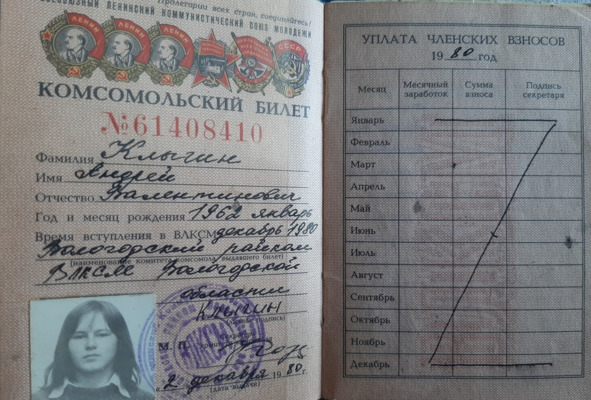 Пролетарии всех стран, соединяйтесь!
ВСЕСОЮЗНЫЙ ЛЕНИНСКИЙ КОММУНИСТИЧЕСКИЙ СОЮЗ МОЛОДЕЖИ
ЛЕНИН
ЛЕНИН
ЛЕНИН
СССР
КОМСОМОЛЬСКИЙ БИЛЕТ
№61408410
Фамилия Клыгин
Имя Андрей
Отчество Валентинович
Год и месяц рождения 1962 январь
Время вступления в ВЛКСМ декабрь 1980
Вологодский райком
(наименование комитета комсомола, выдавшего билет)
ВЛКСМ Вологодской
области
Клыгин
М.П.
ВЛКСМ
"2" декабря 1980 г.
(дата выдачи)
УПЛАТА ЧЛЕНСКИХ ВЗНОСОВ
1980 год
Месяц Месячный заработок Сумма взноса Подпись секретаря
Январь
Февраль
Март
Апрель
Май
Июнь
Июль
Август
Сентябрь
Октябрь
Ноябрь
Декабрь